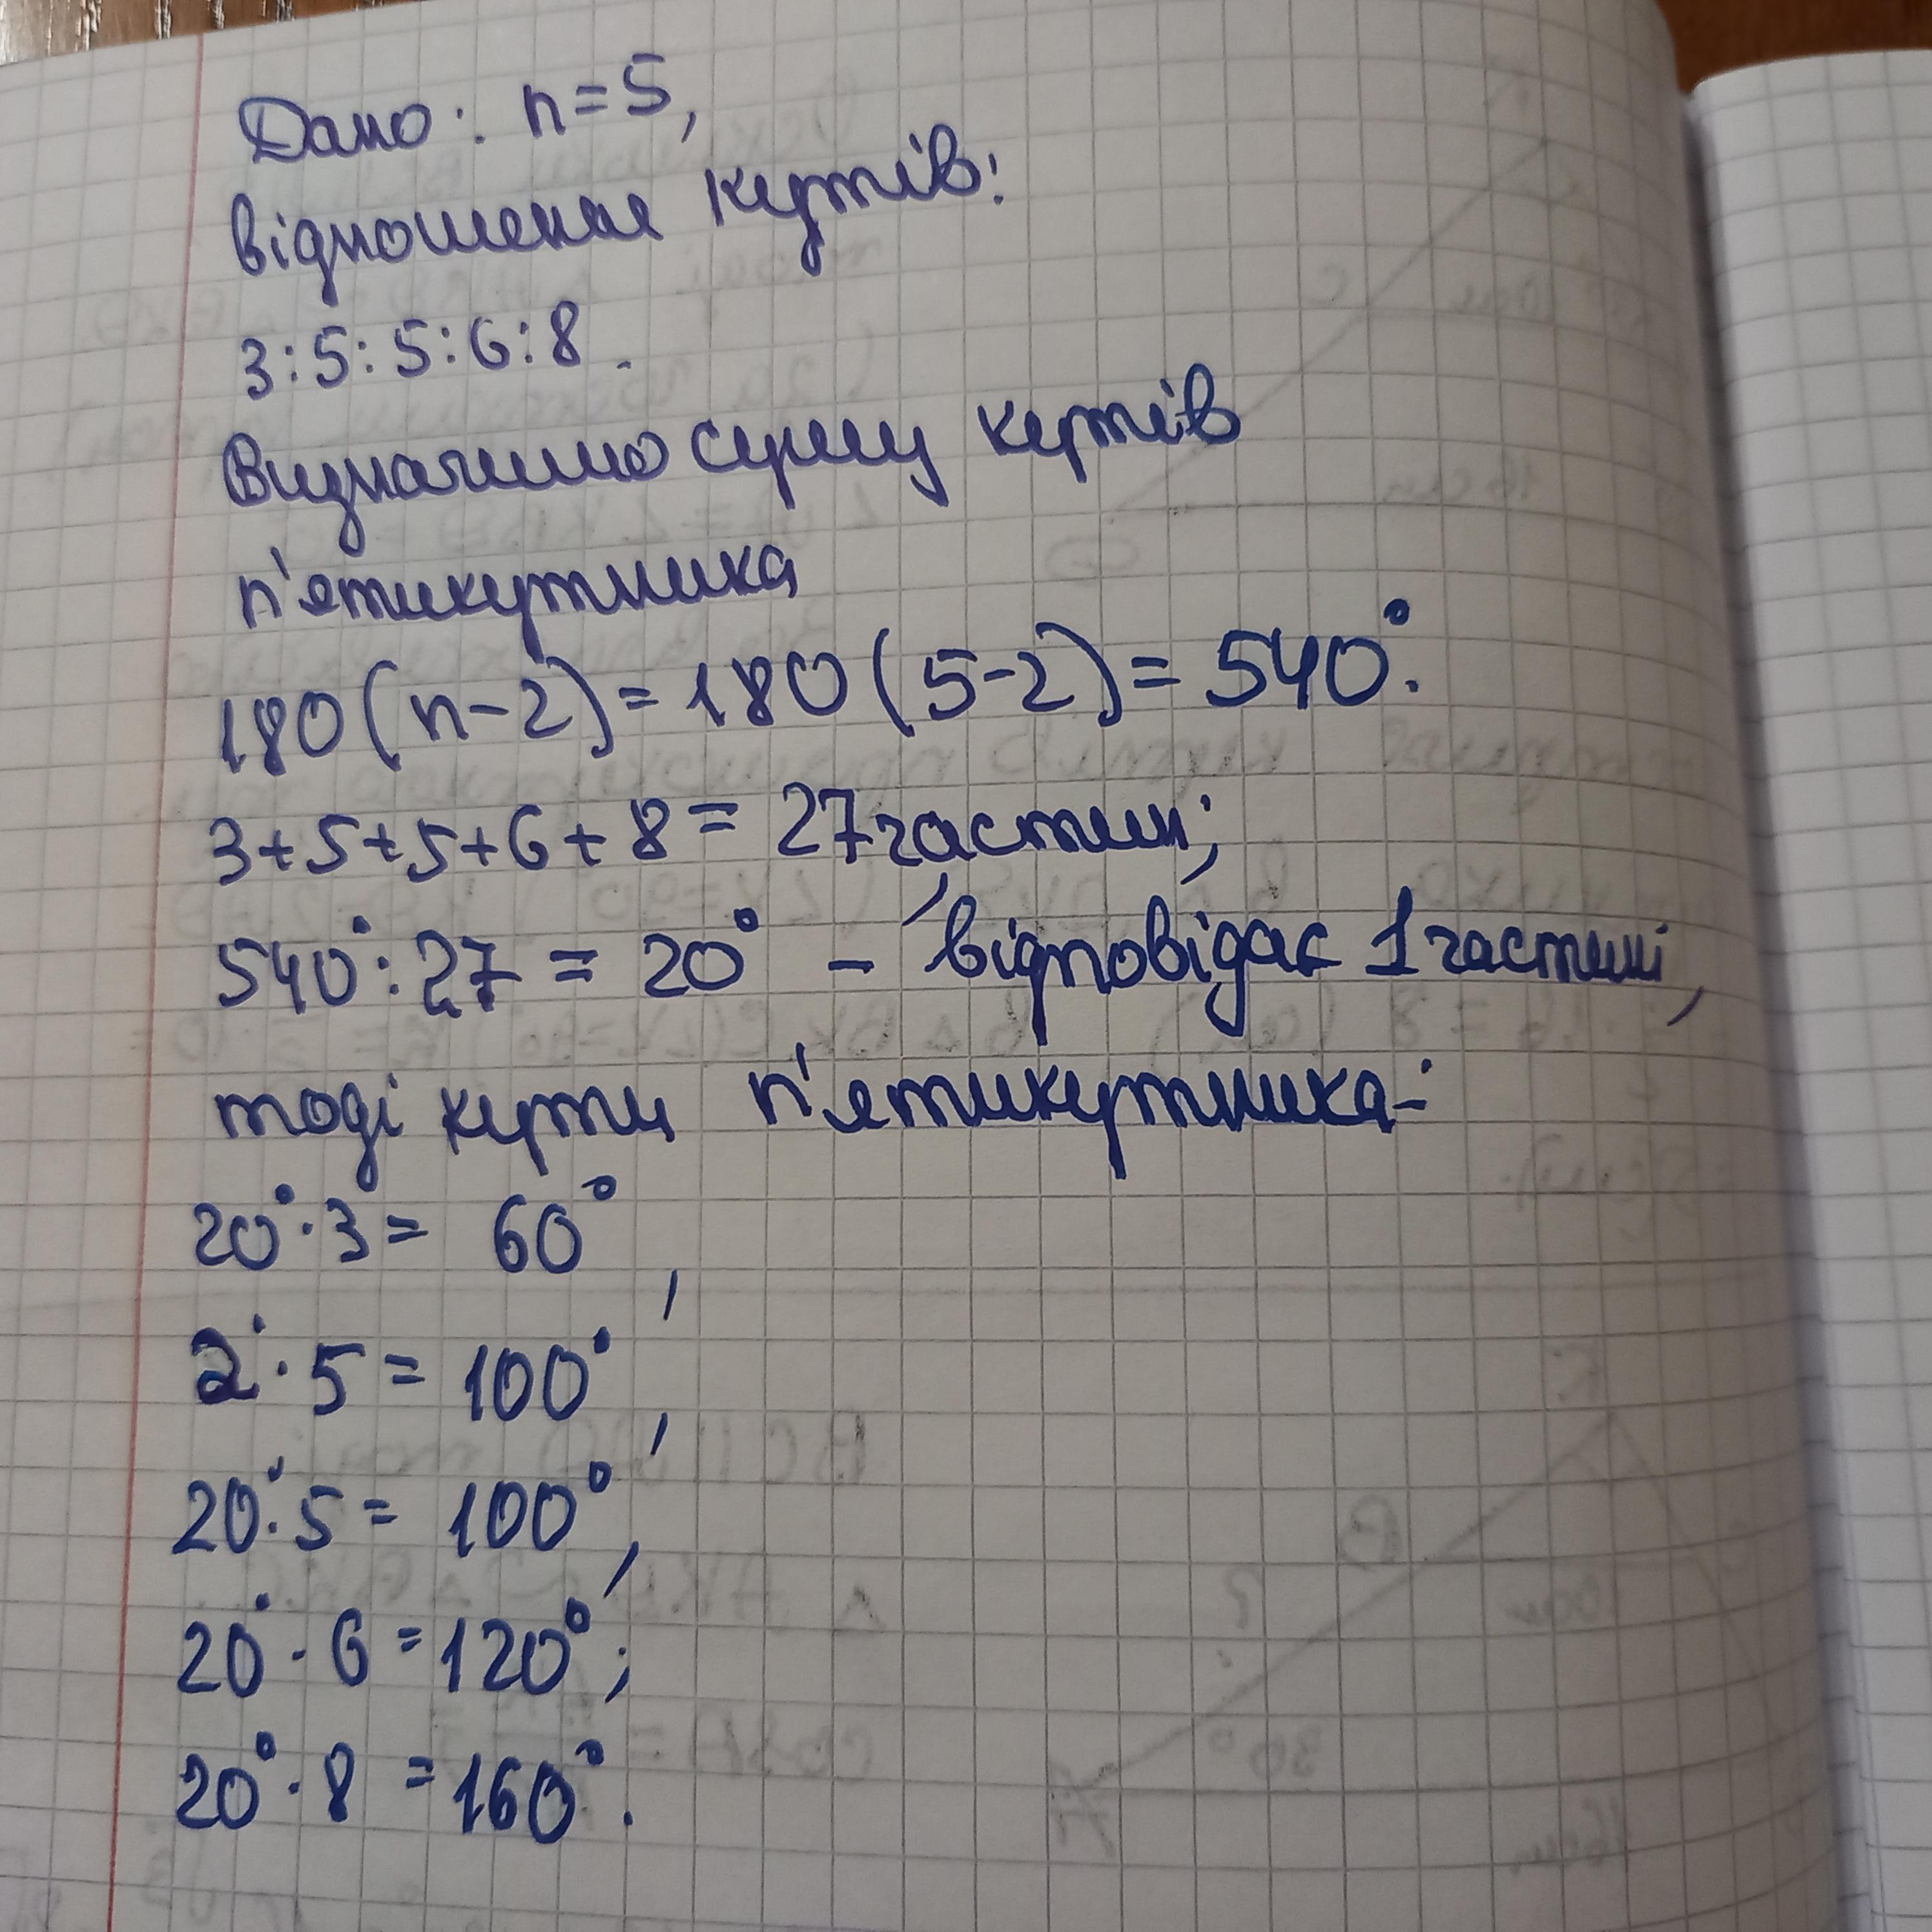 Дано: n=5,
відношення кутів:
3:5:5:6:8.
Визначимо суму кутів
п'ятикутника
180(n-2)=180(5-2)=540°.
3+5+5+6+8=27частин;
540°:27=20° - відповідає 1 частині,
тоді кути п'ятикутника:
20°·3= 60°,
2°·5=100°,
20°·5=100°,
20°·6=120°;
20°·8=160°.